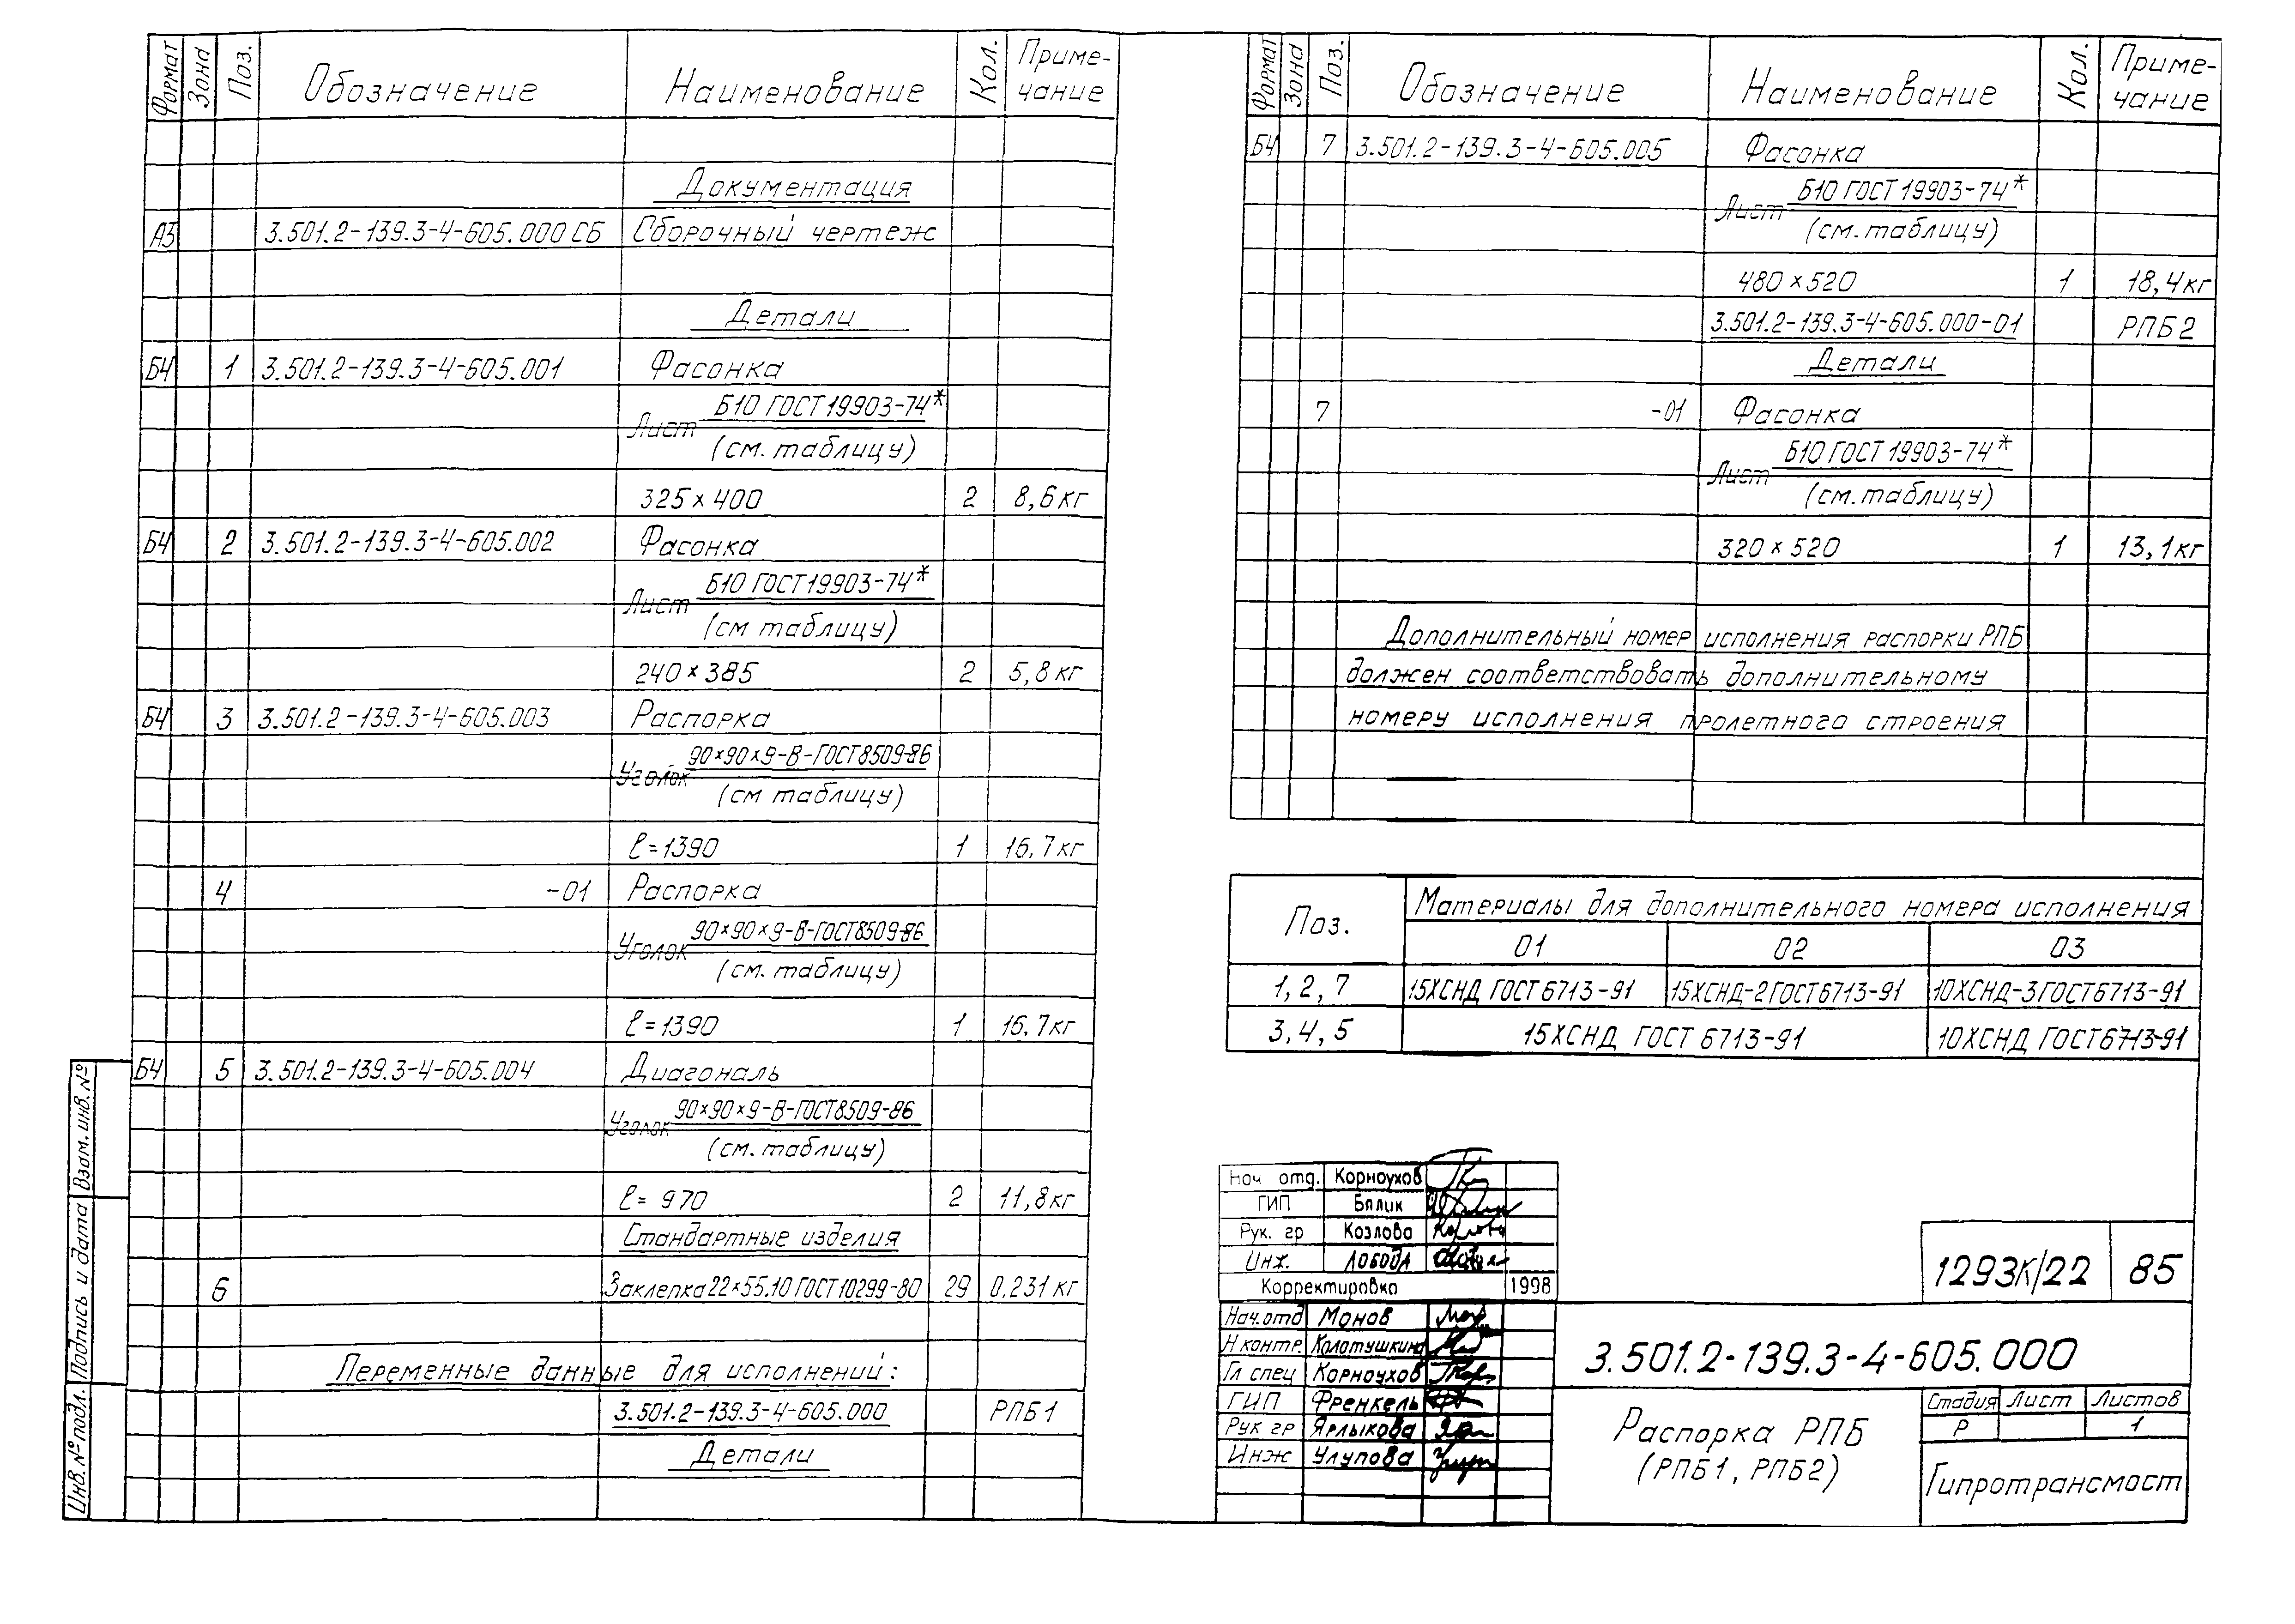 Формат Зона Поз. Обозначение Наименование Кол. Приме-
чание
Документация
А3 3.501.2-139.3-4-605.000 СБ Сборочный чертеж
Детали
Б4 1 3.501.2-139.3-4-605.001 Фасонка
Лист Б10 ГОСТ 19903-74*
(см. таблицу)
325 × 400 2 8,6 кг
Б4 2 3.501.2-139.3-4-605.002 Фасонка
Лист Б10 ГОСТ 19903-74*
(см таблицу)
240 × 385 2 5,8 кг
Б4 3 3.501.2-139.3-4-605.003 Распорка
Уголок 90×90×9-В-ГОСТ 8509-86
(см таблицу)
ℓ = 1390 1 16,7 кг
4 -01 Распорка
Уголок 90×90×9-В-ГОСТ 8509-86
(см. таблицу)
ℓ = 1390 1 16,7 кг
Б4 5 3.501.2-139.3-4-605.004 Диагональ
Уголок 90×90×9-В-ГОСТ 8509-86
(см. таблицу)
ℓ = 970 2 11,8 кг
Стандартные изделия
6 Заклепка 22×55.10 ГОСТ 10299-80 29 0,231 кг
Переменные данные для исполнений:
3.501.2-139.3-4-605.000 РПБ1
Детали
Взам. инв. №
Подпись и дата
Инв. № подл.
Формат Зона Поз. Обозначение Наименование Кол. Приме-
чание
Б4 7 3.501.2-139.3-4-605.005 Фасонка
Лист Б10 ГОСТ 19903-74*
(см. таблицу)
480 × 520 1 18,4 кг
3.501.2-139.3-4-605.000-01 РПБ2
Детали
7 -01 Фасонка
Лист Б10 ГОСТ 19903-74*
(см. таблицу)
320 × 520 1 13,1 кг
Дополнительный номер исполнения распорки РПБ
должен соответствовать дополнительному
номеру исполнения пролетного строения
Поз. Материалы для дополнительного номера исполнения
01 02 03
1, 2, 7 15ХСНД ГОСТ 6713-91 15ХСНД-2 ГОСТ 6713-91 10ХСНД-3 ГОСТ 6713-91
3, 4, 5 15ХСНД ГОСТ 6713-91 10ХСНД ГОСТ 6713-91
Нач отд. Корноухов
ГИП Бялик
Рук. гр Козлова
Инж. Лобода
Корректировка 1998
Нач. отд Монов
Н контр. Колотушкина
Гл спец Корноухов
ГИП Френкель
Рук гр Ярлыкова
Инж Улупова
1293К/22 85
3.501.2-139.3-4-605.000
Распорка РПБ
(РПБ1, РПБ2)
Стадия Лист Листов
Р 1
Гипротрансмост